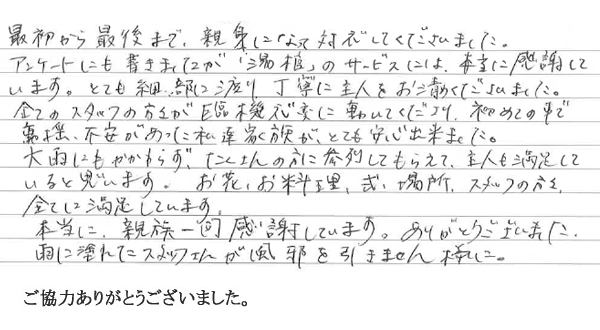 最初から最後まで、親身になって対応してくださいました。
アンケートにも書きましたが「湯棺」のサービスには、本当に感謝して
います。とても細部に渡り丁寧に主人をお清めくださいました。
全てのスタッフの方々が臨機応変に動いてくださり、初めての事で
動揺、不安があった私達家族が、とても安心出来ました。
大雨にもかかわらず、たくさんの方に参列してもらえて、主人も満足して
いると思います。お花、お料理、式場所、スタッフの方々、
全てに満足しています。
本当に、親族一同感謝しています。ありがとうございました。
雨に塗れたスタッフさんが風邪を引きません様に。
ご協力ありがとうございました。